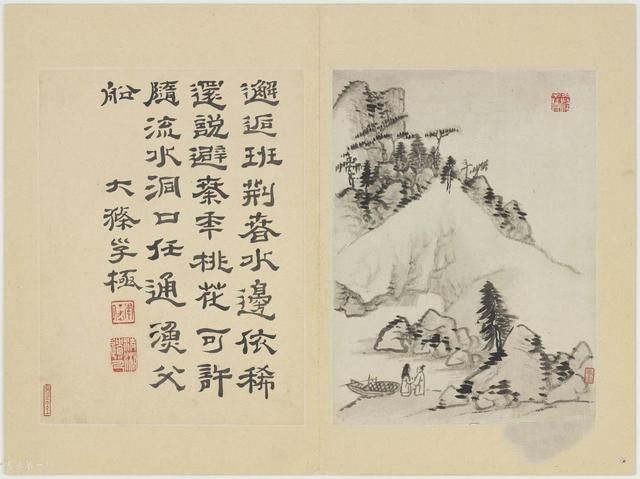 邂逅班荆春水邊依稀
還說避秦年桃花可許
隨流水洞口任通漁父
船
大滌子極